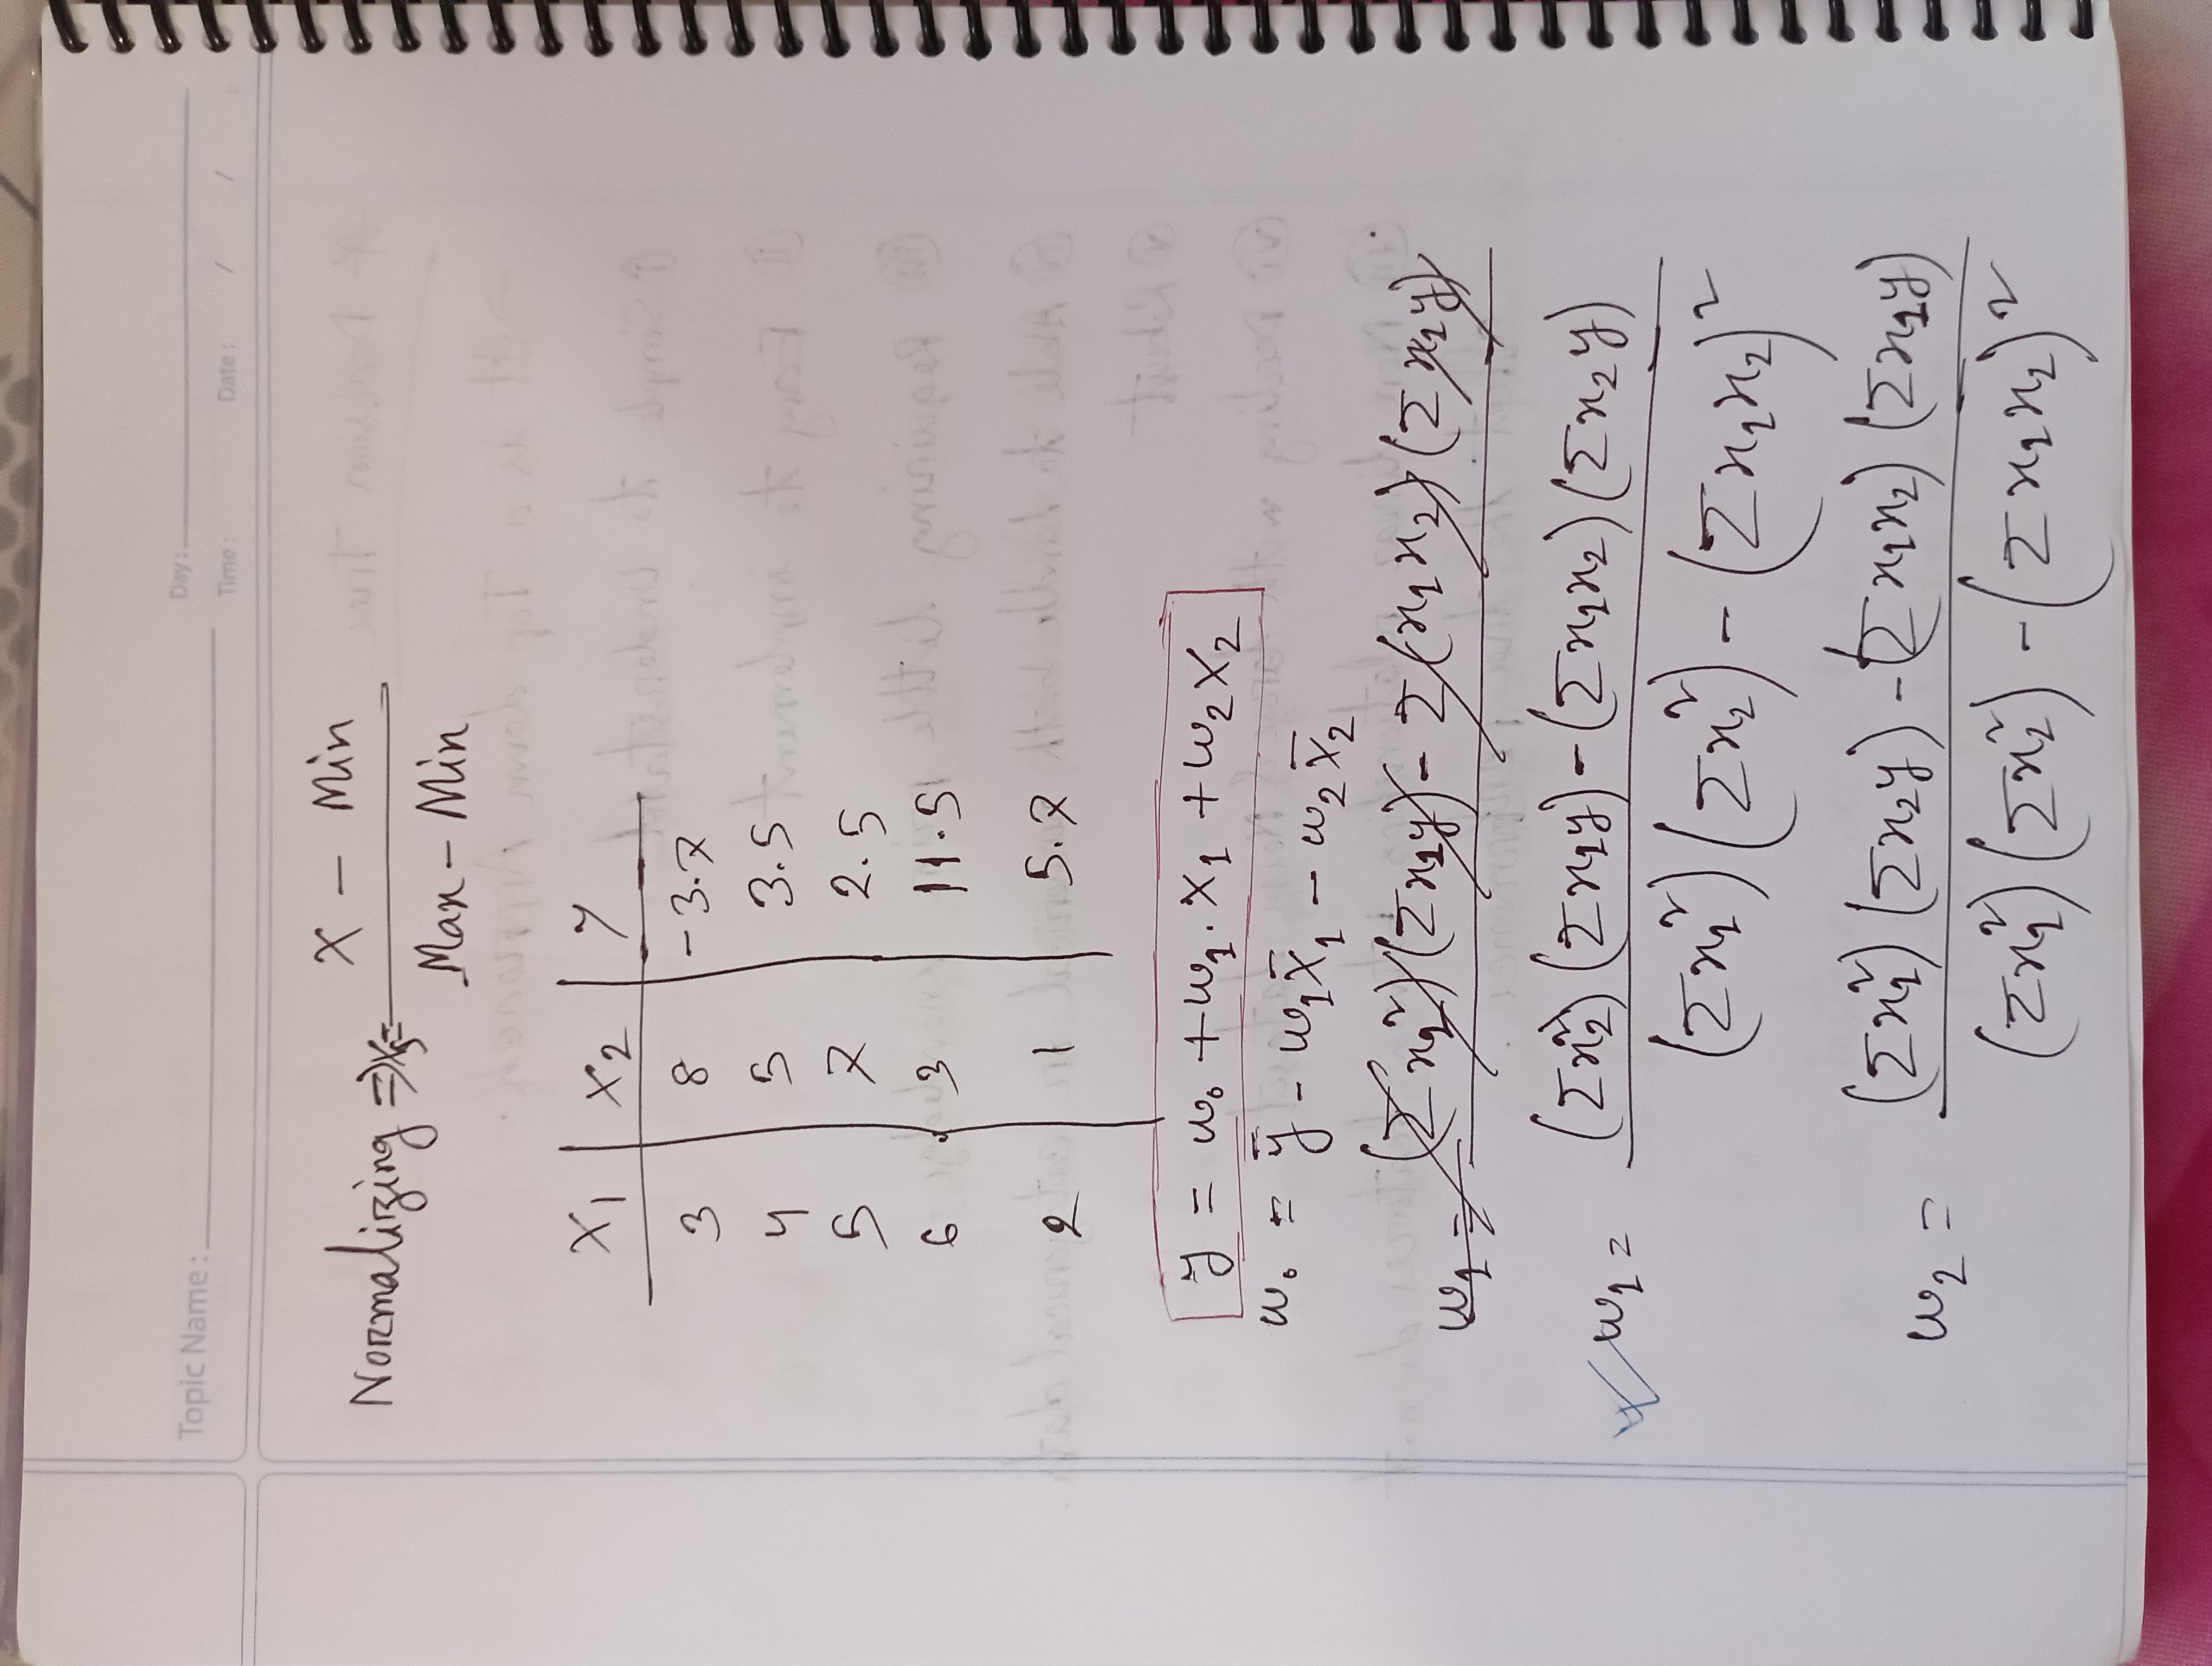 Topic Name :
Day :
Time : Date : / /
Normalizing ⇒ X₅ = (X − Min) / (Max − Min)
X₁ | X₂ | Y
3 | 8 | -3.7
4 | 5 | 3.5
5 | 7 | 2.5
6 | 3 | 11.5
2 | 1 | 5.7
y = w₀ + w₁. X₁ + w₂ X₂
w₀ = ȳ - w₁ X̄₁ - w₂ X̄₂
w₁ = (Σx₂²) (Σx₁y) - (Σx₁x₂) (Σx₂y)
(Σx₁²) (Σx₂²) - (Σx₁x₂)²
w₂ = (Σx₁²) (Σx₂y) - (Σx₁x₂) (Σx₁y)
(Σx₁²) (Σx₂²) - (Σx₁x₂)²